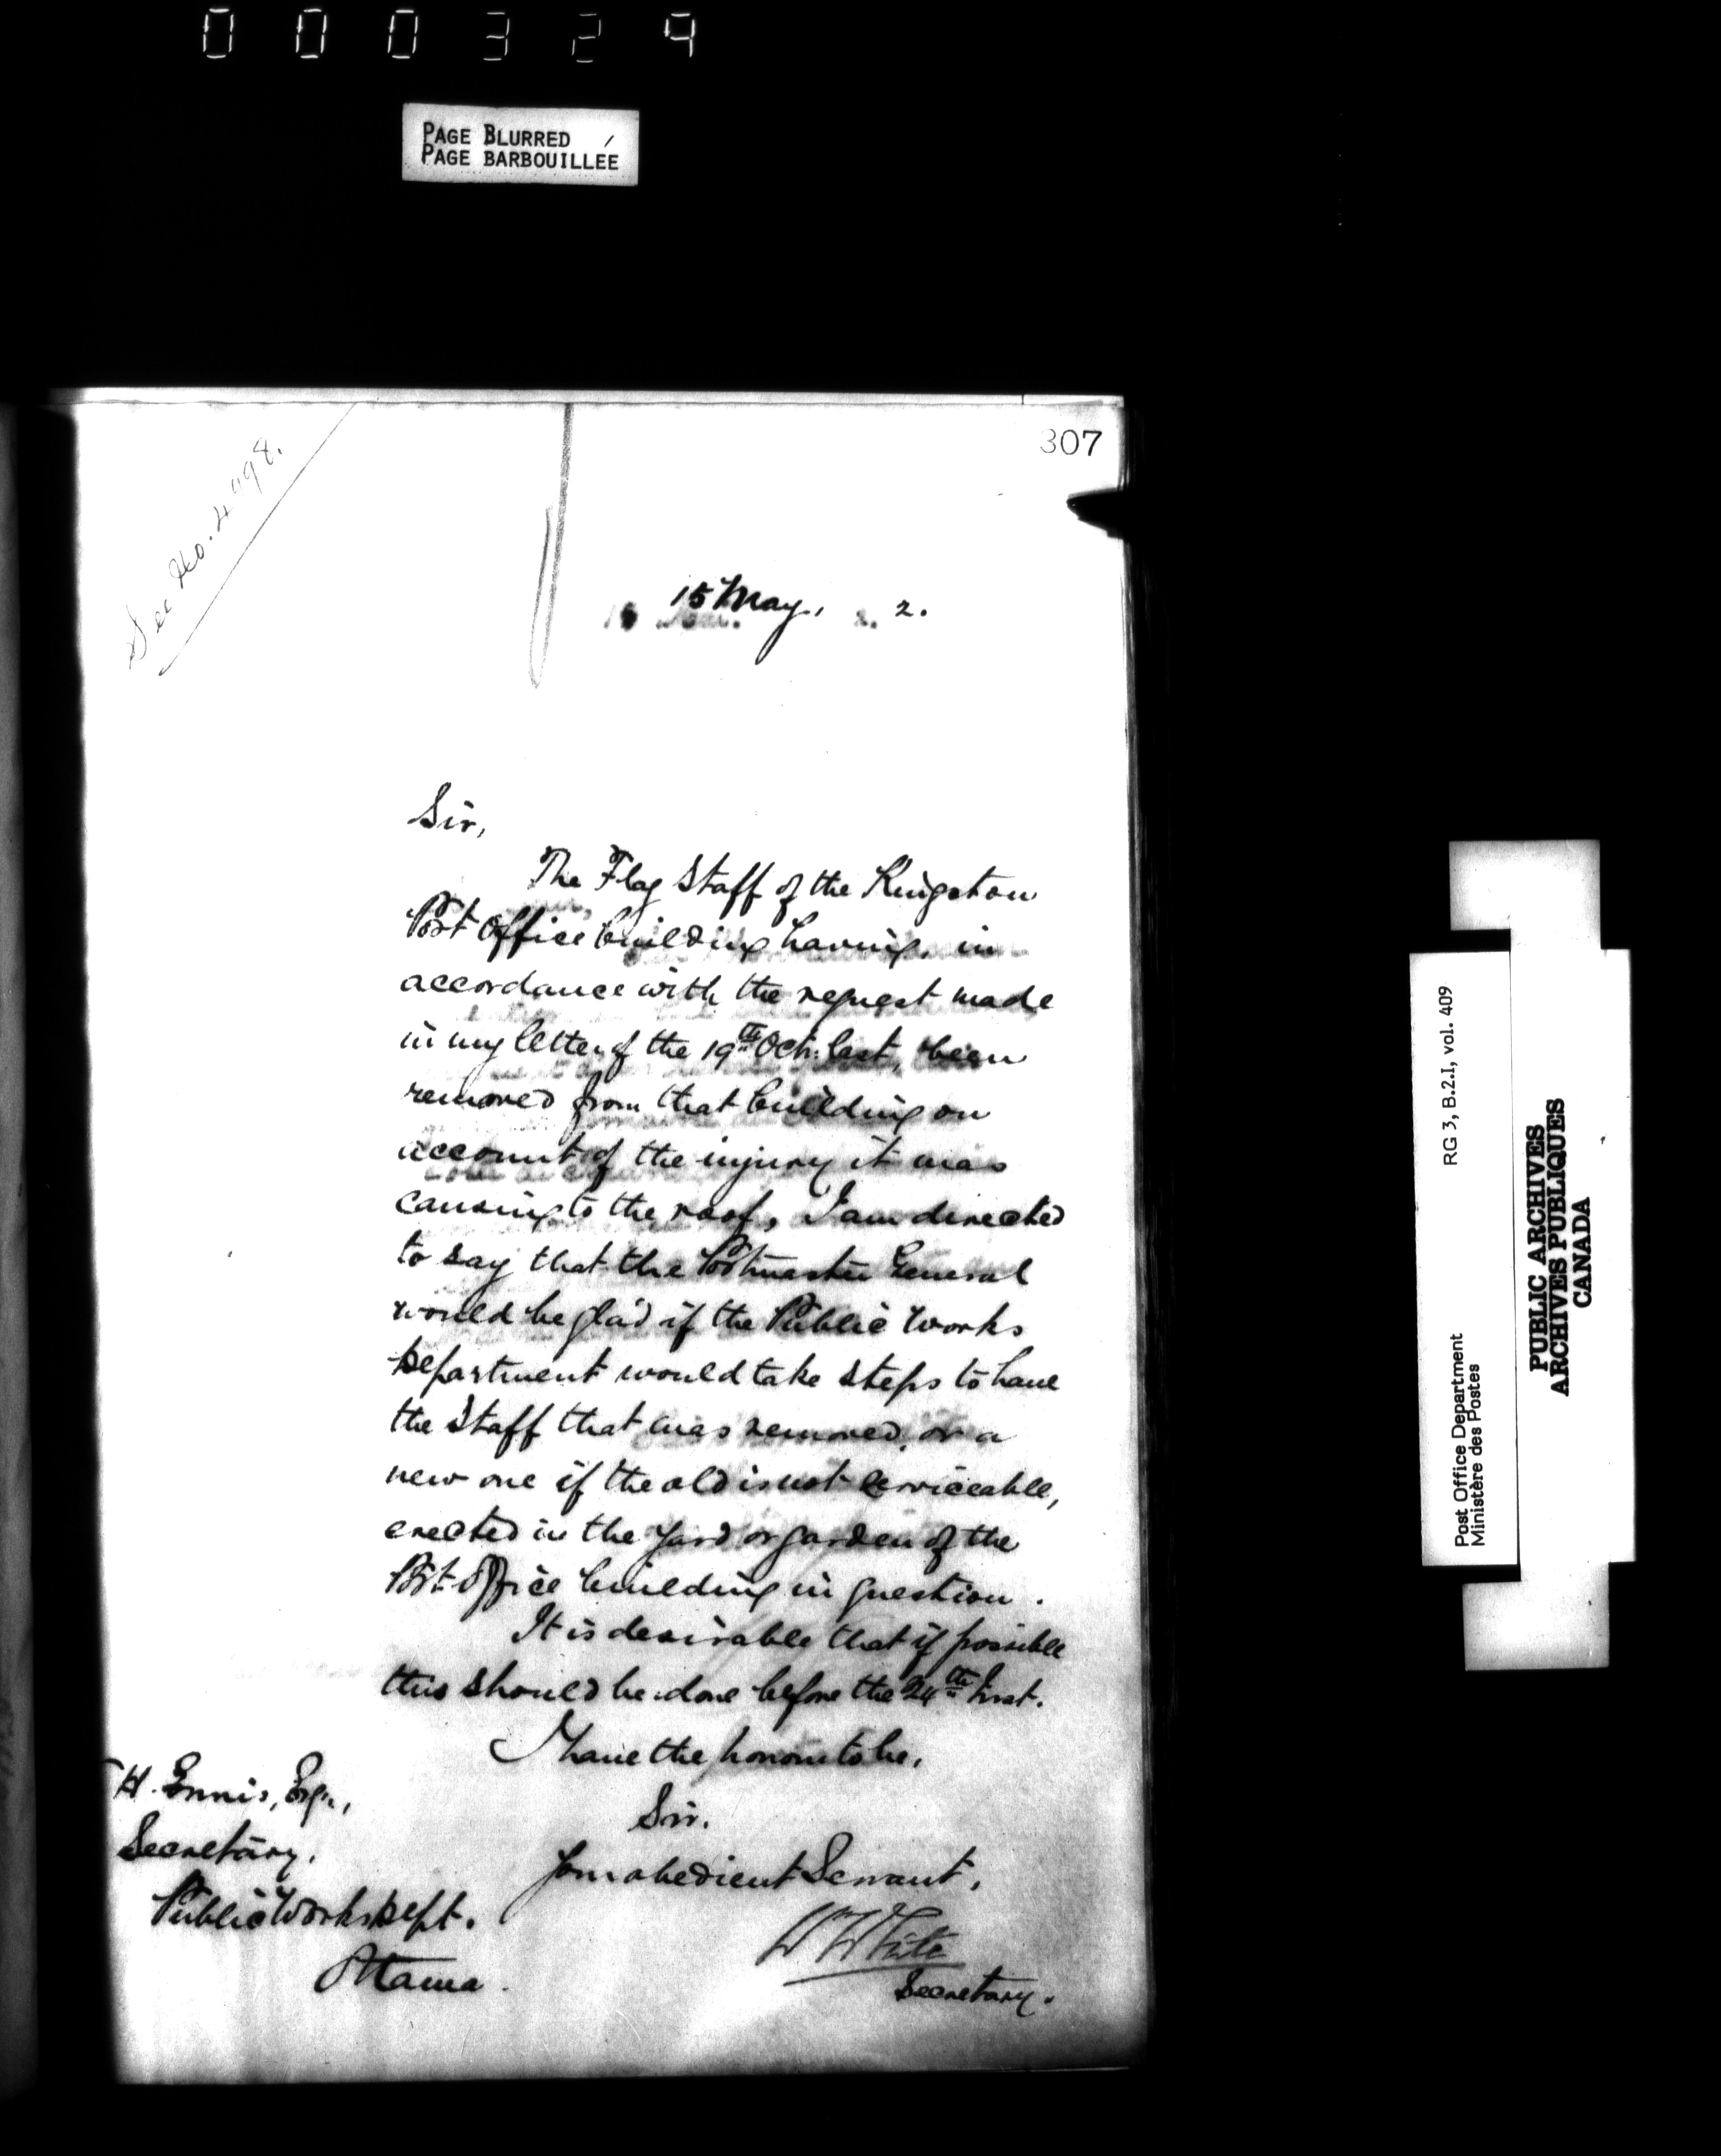 000329
PAGE BLURRED
PAGE BARBOUILLÉE
307
See No. 4"98.
15 May, 2.
Sir,
The Flag Staff of the Kingston
Post Office building having, in
accordance with the request made
in my letter of the 19th Oct: last, been
removed from that building on
account of the injury it was
causing to the roof, I am directed
to say that the Postmaster General
would be glad if the Public Works
Department would take steps to have
the Staff that was removed, or a
new one if the old is not serviceable,
erected in the yard or garden of the
Post Office building in question.
It is desirable that if possible
this should be done before the 24th Inst.
I have the honour to be,
Sir.
Your obedient Servant,
W White
Secretary.
H. Ennis, Esqr.,
Secretary.
Public Works Dept.
Ottawa.
Post Office Department RG 3, B.2.I, vol. 409
Ministère des Postes
PUBLIC ARCHIVES
ARCHIVES PUBLIQUES
CANADA